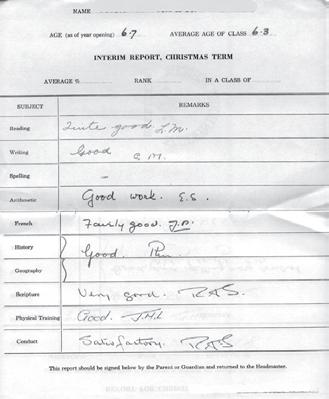 NAME
AGE (as of year opening) 6.7 AVERAGE AGE OF CLASS 6.3
INTERIM REPORT, CHRISTMAS TERM
AVERAGE % RANK IN A CLASS OF
SUBJECT REMARKS
Reading Quite good. L.M.
Writing Good G.M.
Spelling -
Arithmetic Good work. E.S.
French Fairly good. J.P.
History Good.
Geography
Scripture Very good. RAS.
Physical Training Good. J.H.L
Conduct Satisfactory. RAS
This report should be signed below by the Parent or Guardian and returned to the Headmaster.